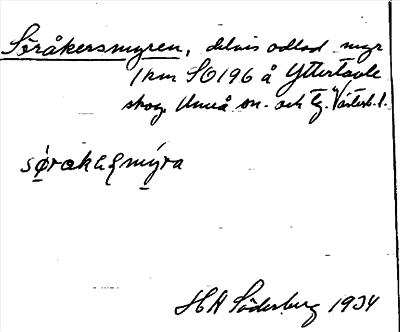 Söråkersmyren, delvis odlad myr
1 km SO 196 å Yttertavle
skog. Umeå sn. och tg. Västerb. l.
HA Söderberg 1934